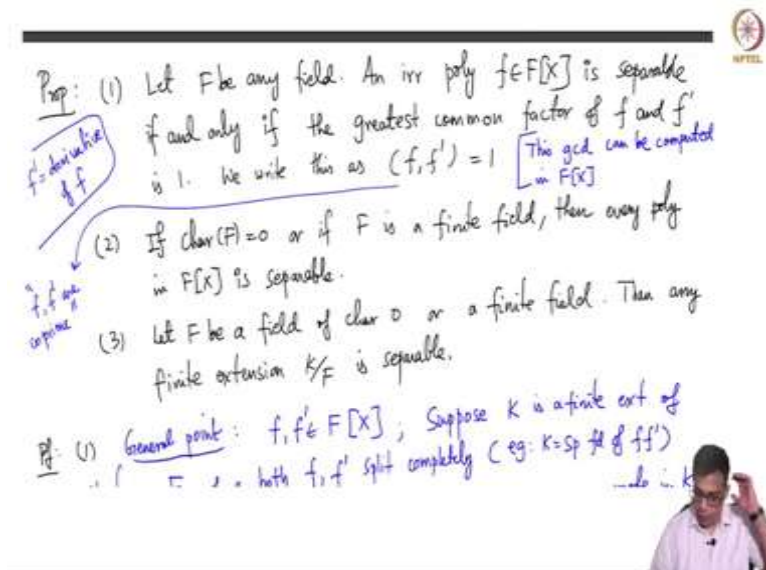 NPTEL
Prop: (1) Let F be any field. An irr poly f∈F[X] is separable
if and only if the greatest common factor of f and f'
is 1. We write this as (f,f') = 1
[This gcd can be computed
in F[X]
f' = derivative
of f
(2) If char(F)=0 or if F is a finite field, then every poly
in F[X] is separable.
"f,f' are
coprime"
(3) Let F be a field of char 0 or a finite field. Then any
finite extension K/F is separable.
Pf: (1) General point: f,f'∈ F[X]; Suppose K is a finite ext of
both f,f' split completely (eg: K=Sp fd of ff')
in K